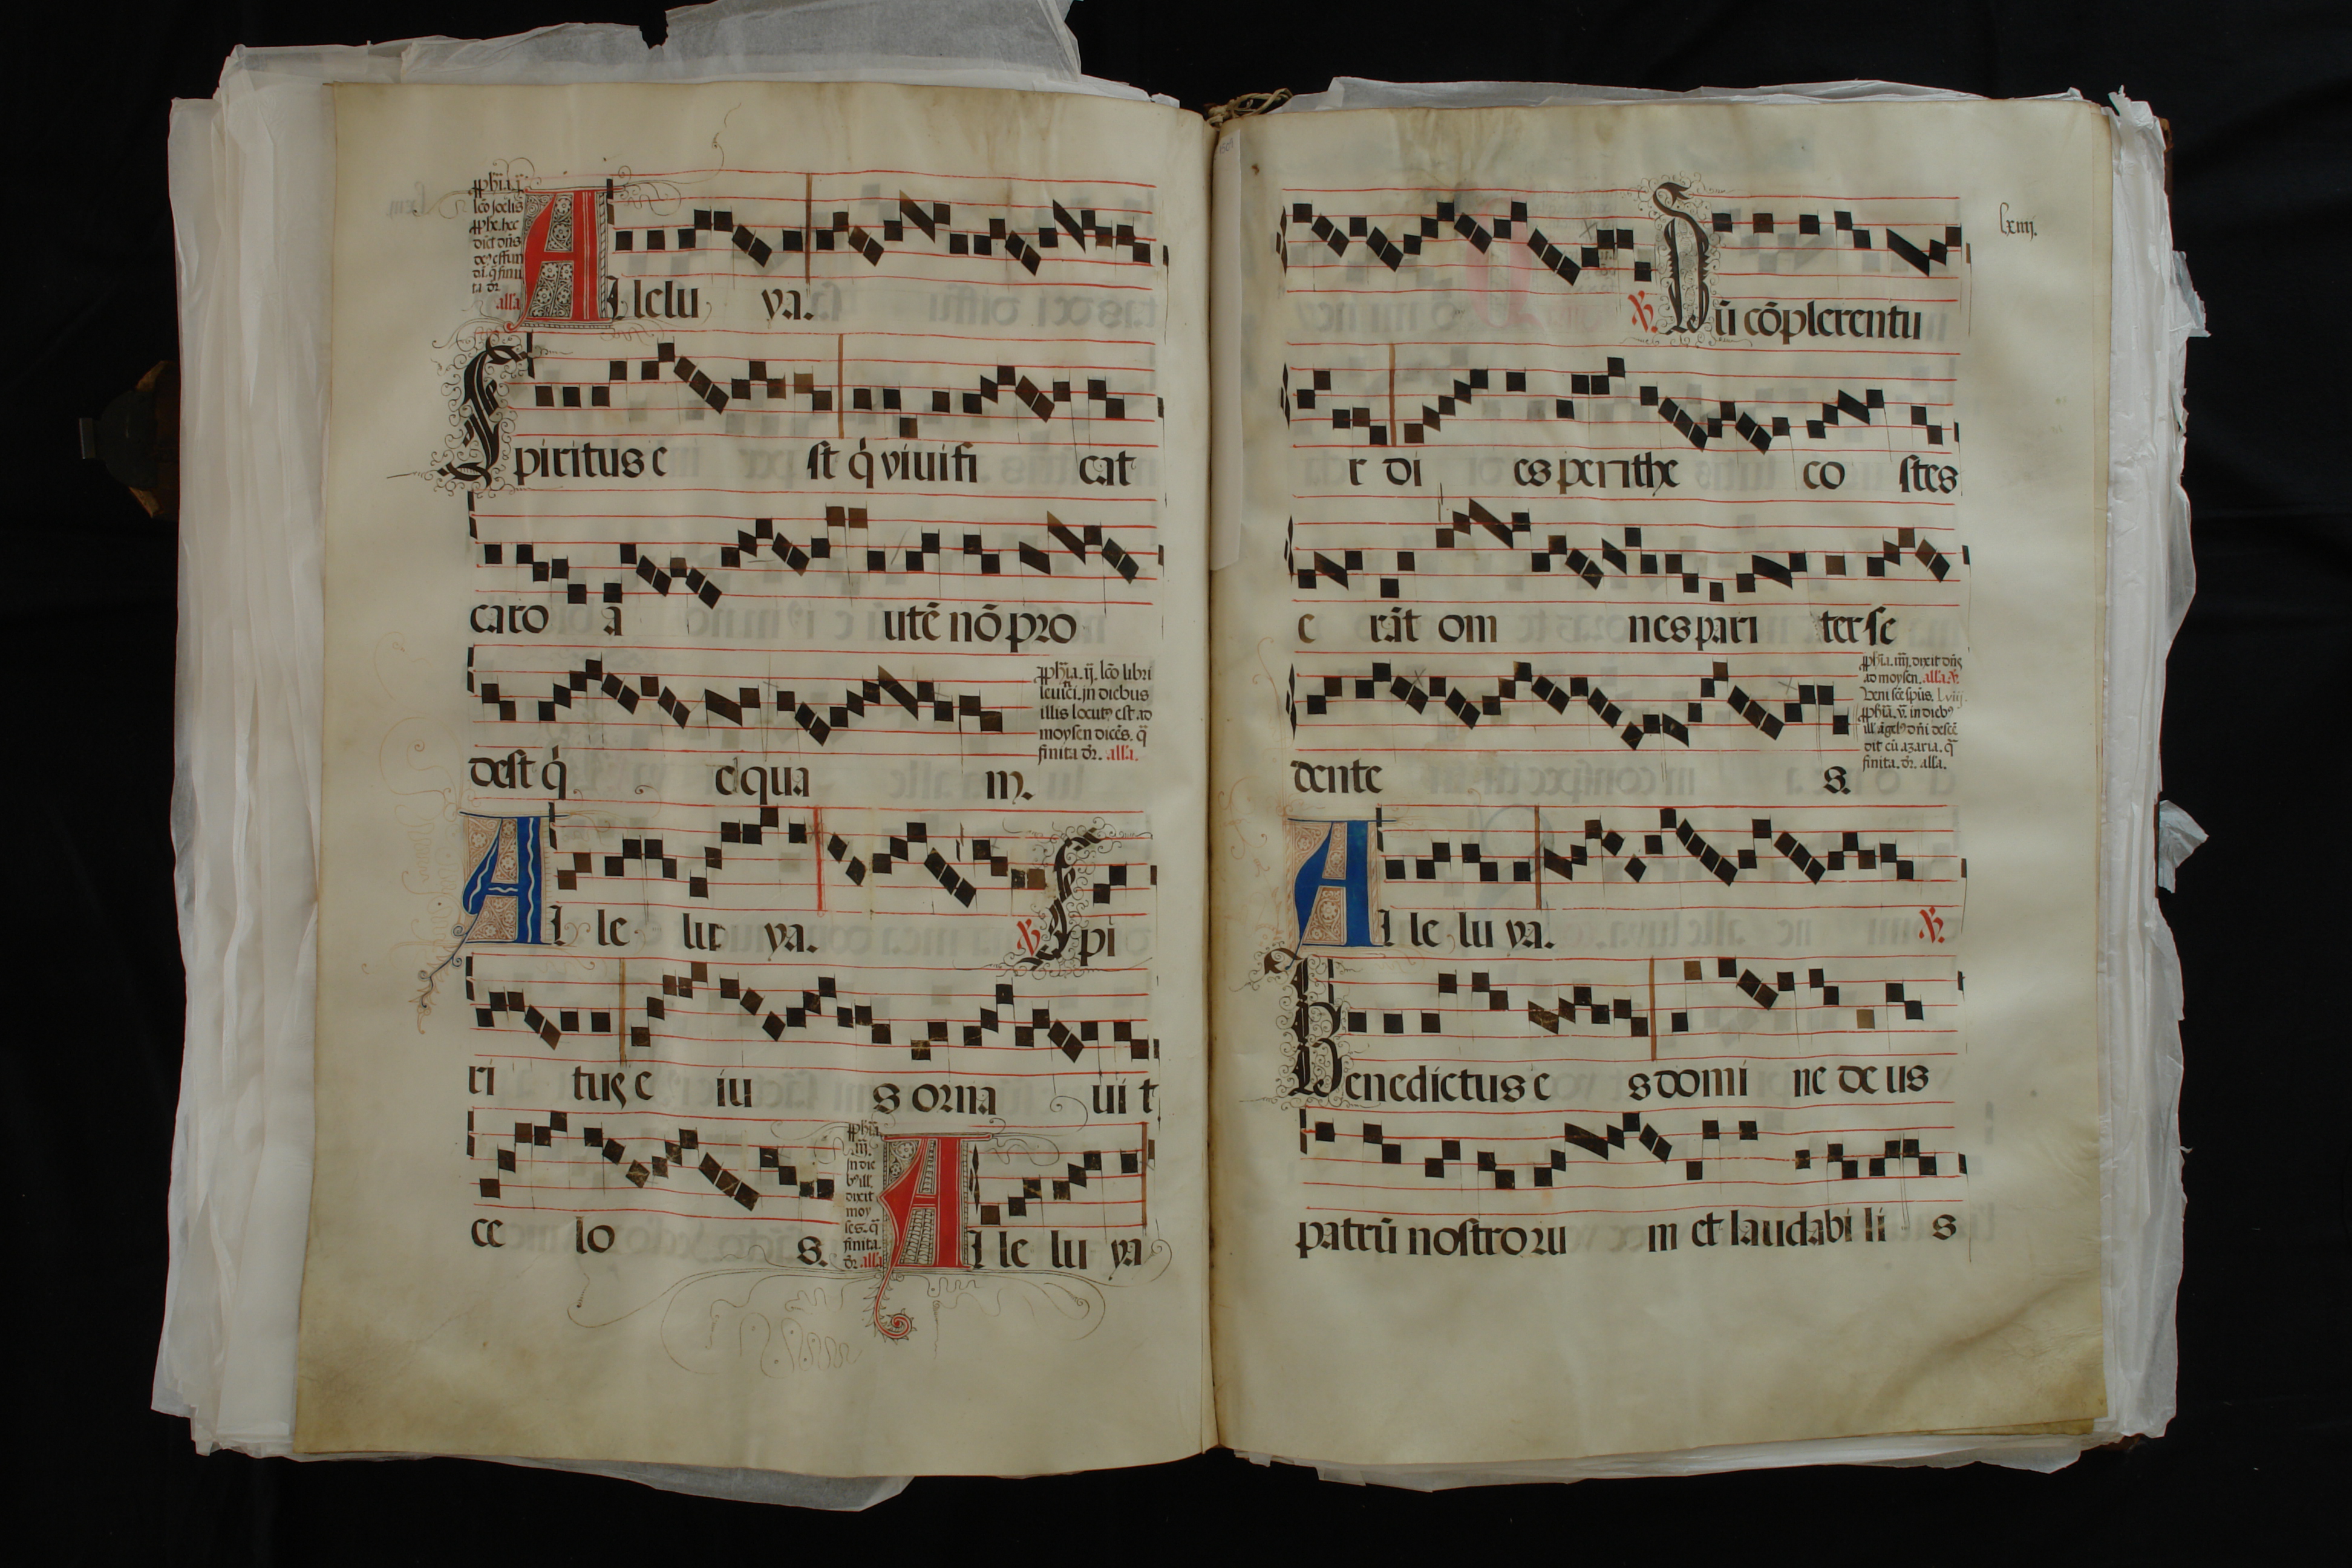 ꝓph̄ia. j̄.
lc̄o joelis
ꝓphe. hec
dicit dn̄s
deꝰ effun
dā. q̄ fini
ta dr̄.
alla
Allelu ya.
Spiritus e st q̇ viuifi cat
caro a utē nō pro
dest q̇ cqua m.
ꝓph̄ia. ij. lc̄o libri
leuitici. jn diebus
illis locutꝰ est ad
moysen dicēs. q̄
finita dr̄. alla.
Al le lu ya.
℣. Spi
ri tus e iu s orna uit
ce lo s.
ꝓph̄ia
.iij.
jn die
bꝰ ill'
dixit
moy
ses. q̄
finita.
dr̄. alla
Al le lu ya
lxiiij.
℣. Dū cōplerentu
r di es penthe co stes
e rāt om nes pari ter se
dente s.
ꝓph̄ia. iiij. dixit dn̄s
ad moysen. alla ℣.
Veni sc̄e sp̄us. lviij
ꝓph̄ia. v. in diebꝰ
ill' āgelꝰ dn̄i descē
dit cū azaria. q̄
finita. dr̄. alla.
Al le lu ya. ℣.
Benedictus e s domi ne de us
patrū nostroru m et laudabi li s